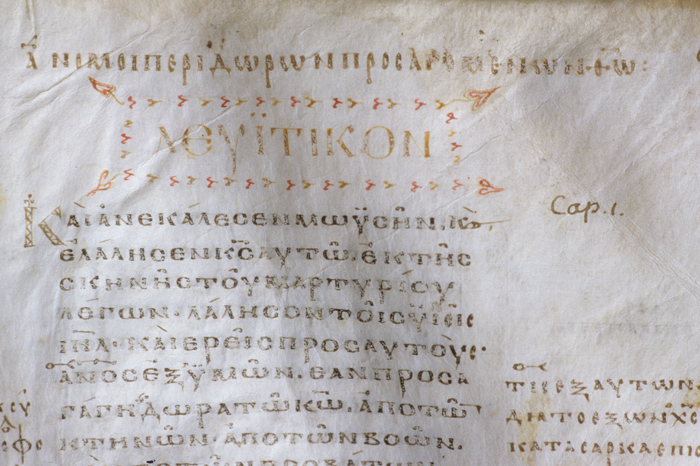 Ᾱ ΝΟΜΟΙ ΠΕΡΙ ΔΩΡΩΝ ΠΡΟϹΑΓΟΜΕΝΩΝ Θ̅Ω̅:
ΛΕΥΪΤΙΚΟΝ
Cap. 1.
ΚΑΙ ΑΝΕΚΑΛΕϹΕΝ ΜΩΫϹΗΝ. Κ̅
ΕΛΑΛΗϹΕΝ Κ̅Ϲ̅ ΑΥΤΩ. ΕΚ ΤΗϹ
ϹΚΗΝΗϹ ΤΟΥ ΜΑΡΤΥΡΙΟΥ
ΛΕΓΩΝ· ΛΑΛΗϹΟΝ ΤΟΙϹ ΥΙΟΙϹ
Ι̅Η̅Λ̅· ΚΑΙ ΕΡΕΙϹ ΠΡΟϹ ΑΥΤΟΥϹ·
Α̅Ν̅Ο̅Ϲ̅ ΕΞ ΫΜΩΝ. ΕΑΝ ΠΡΟϹΑ
ΓΑΓΗ ΔΩΡΑ ΤΩ Κ̅Ω̅. ΑΠΟ ΤΩ̅
ΚΤΗΝΩΝ· ΑΠΟ ΤΩΝ ΒΟΩΝ.
ΤΙϹ ΕΞ ΑΥΤΩΝ
ΚΑΤΑ ϹΑΡΚΑ